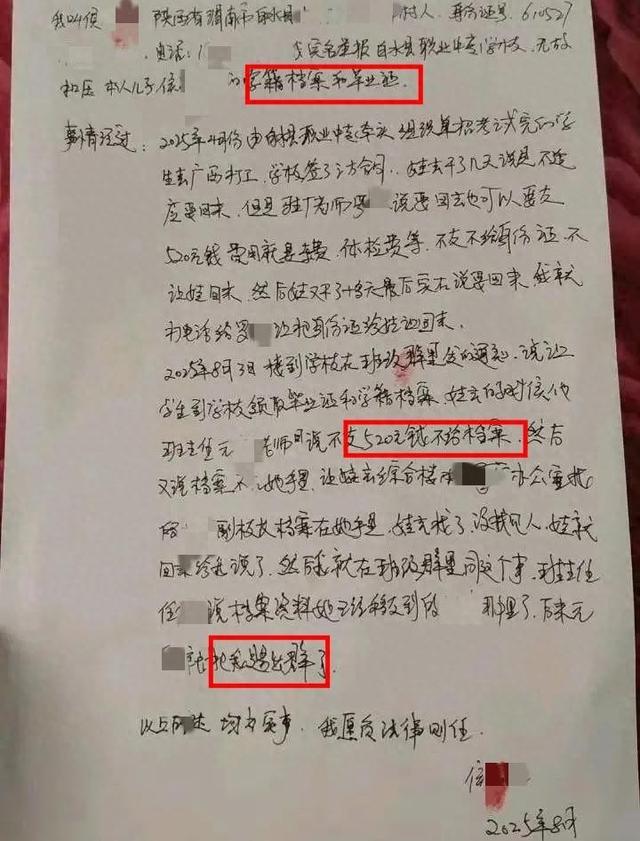 我叫侯 陕西省渭南市白水县 村人，身份证号，610527
电话：1 我实名举报白水县职业中专学校，无故
扣压本人儿子信 的学籍档案和毕业证。
事情经过：2025年4月份由白水县职业中专牵头组织单招考试完的学
生去广西打工，学校签了三方合同，娃去干了几天说是不适
应要回来，但是驻厂老师罗 说要回去也可以要交
520元钱费用就是车费，体检费等，不交不给身份证，不
让娃回来，然后娃又干了十多天最后实在说要回来，我就
打电话给罗 让把身份证给娃让回来。
2025年8月3日接到学校在班级群里发的通知，说让
学生到学校领取毕业证和学籍档案，娃去的时候他
班主任元 老师说不交520元钱不给档案，然后
又说档案不在她手里，让娃去综合楼 办公室找
的 副校长档案在她手里，娃去找了，没找见人，娃就
回来给我说了，然后我就在班级群里问这个事，班主任
任 说档案资料她已经移交到 那里了，后来元
老师把我踢出群了。
以上所述均为实事，我愿负法律责任。
信
2025年8月